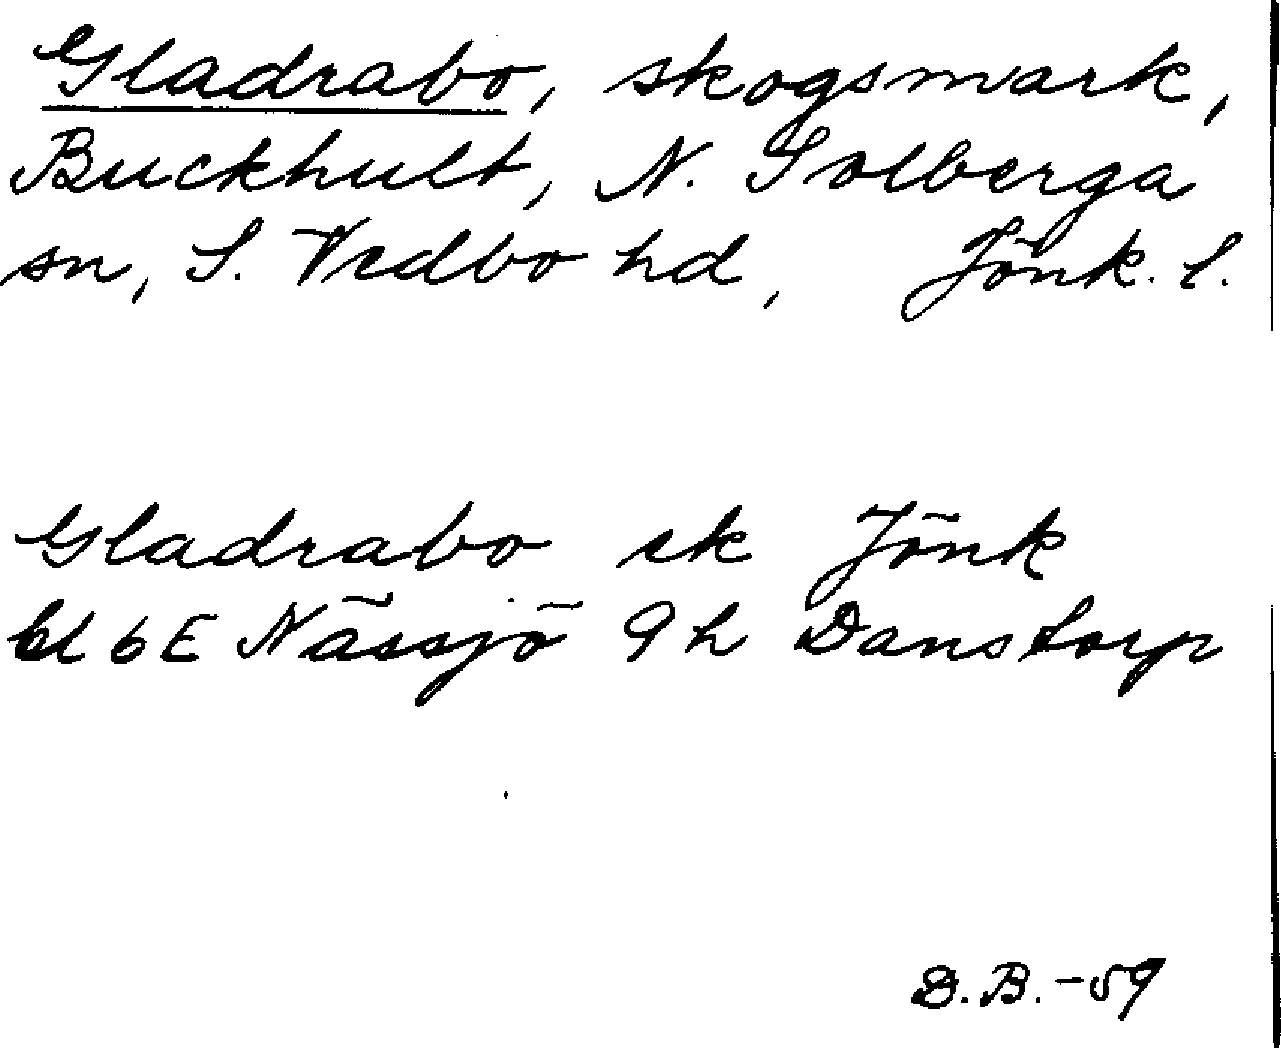 Gladrabo, skogsmark,
Buckhult, N. Solberga
sn, S. Vedbo hd, Jönk. l.
Gladrabo ek Jönk
bl 6E Nässjö 9h Danstorp
D.B.-59